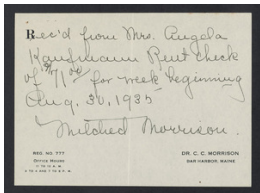 Rec'd from Mrs. Angela
Kaufmann Rent check
of $71.00 for week beginning
Aug. 30, 1935
Mildred Morrison.
REG. NO. 777
OFFICE HOURS
11 TO 12 A.M.
DR. C. C. MORRISON
BAR HARBOR, MAINE